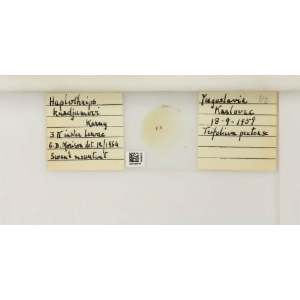 Haplothrips
kurdjumovi
Karny
3 II instar larvae
G.D. Morison det. 12/1964
Swan's mountant
Yugoslavia 110
Karlovac
18-9-1959
Trifolium pratense